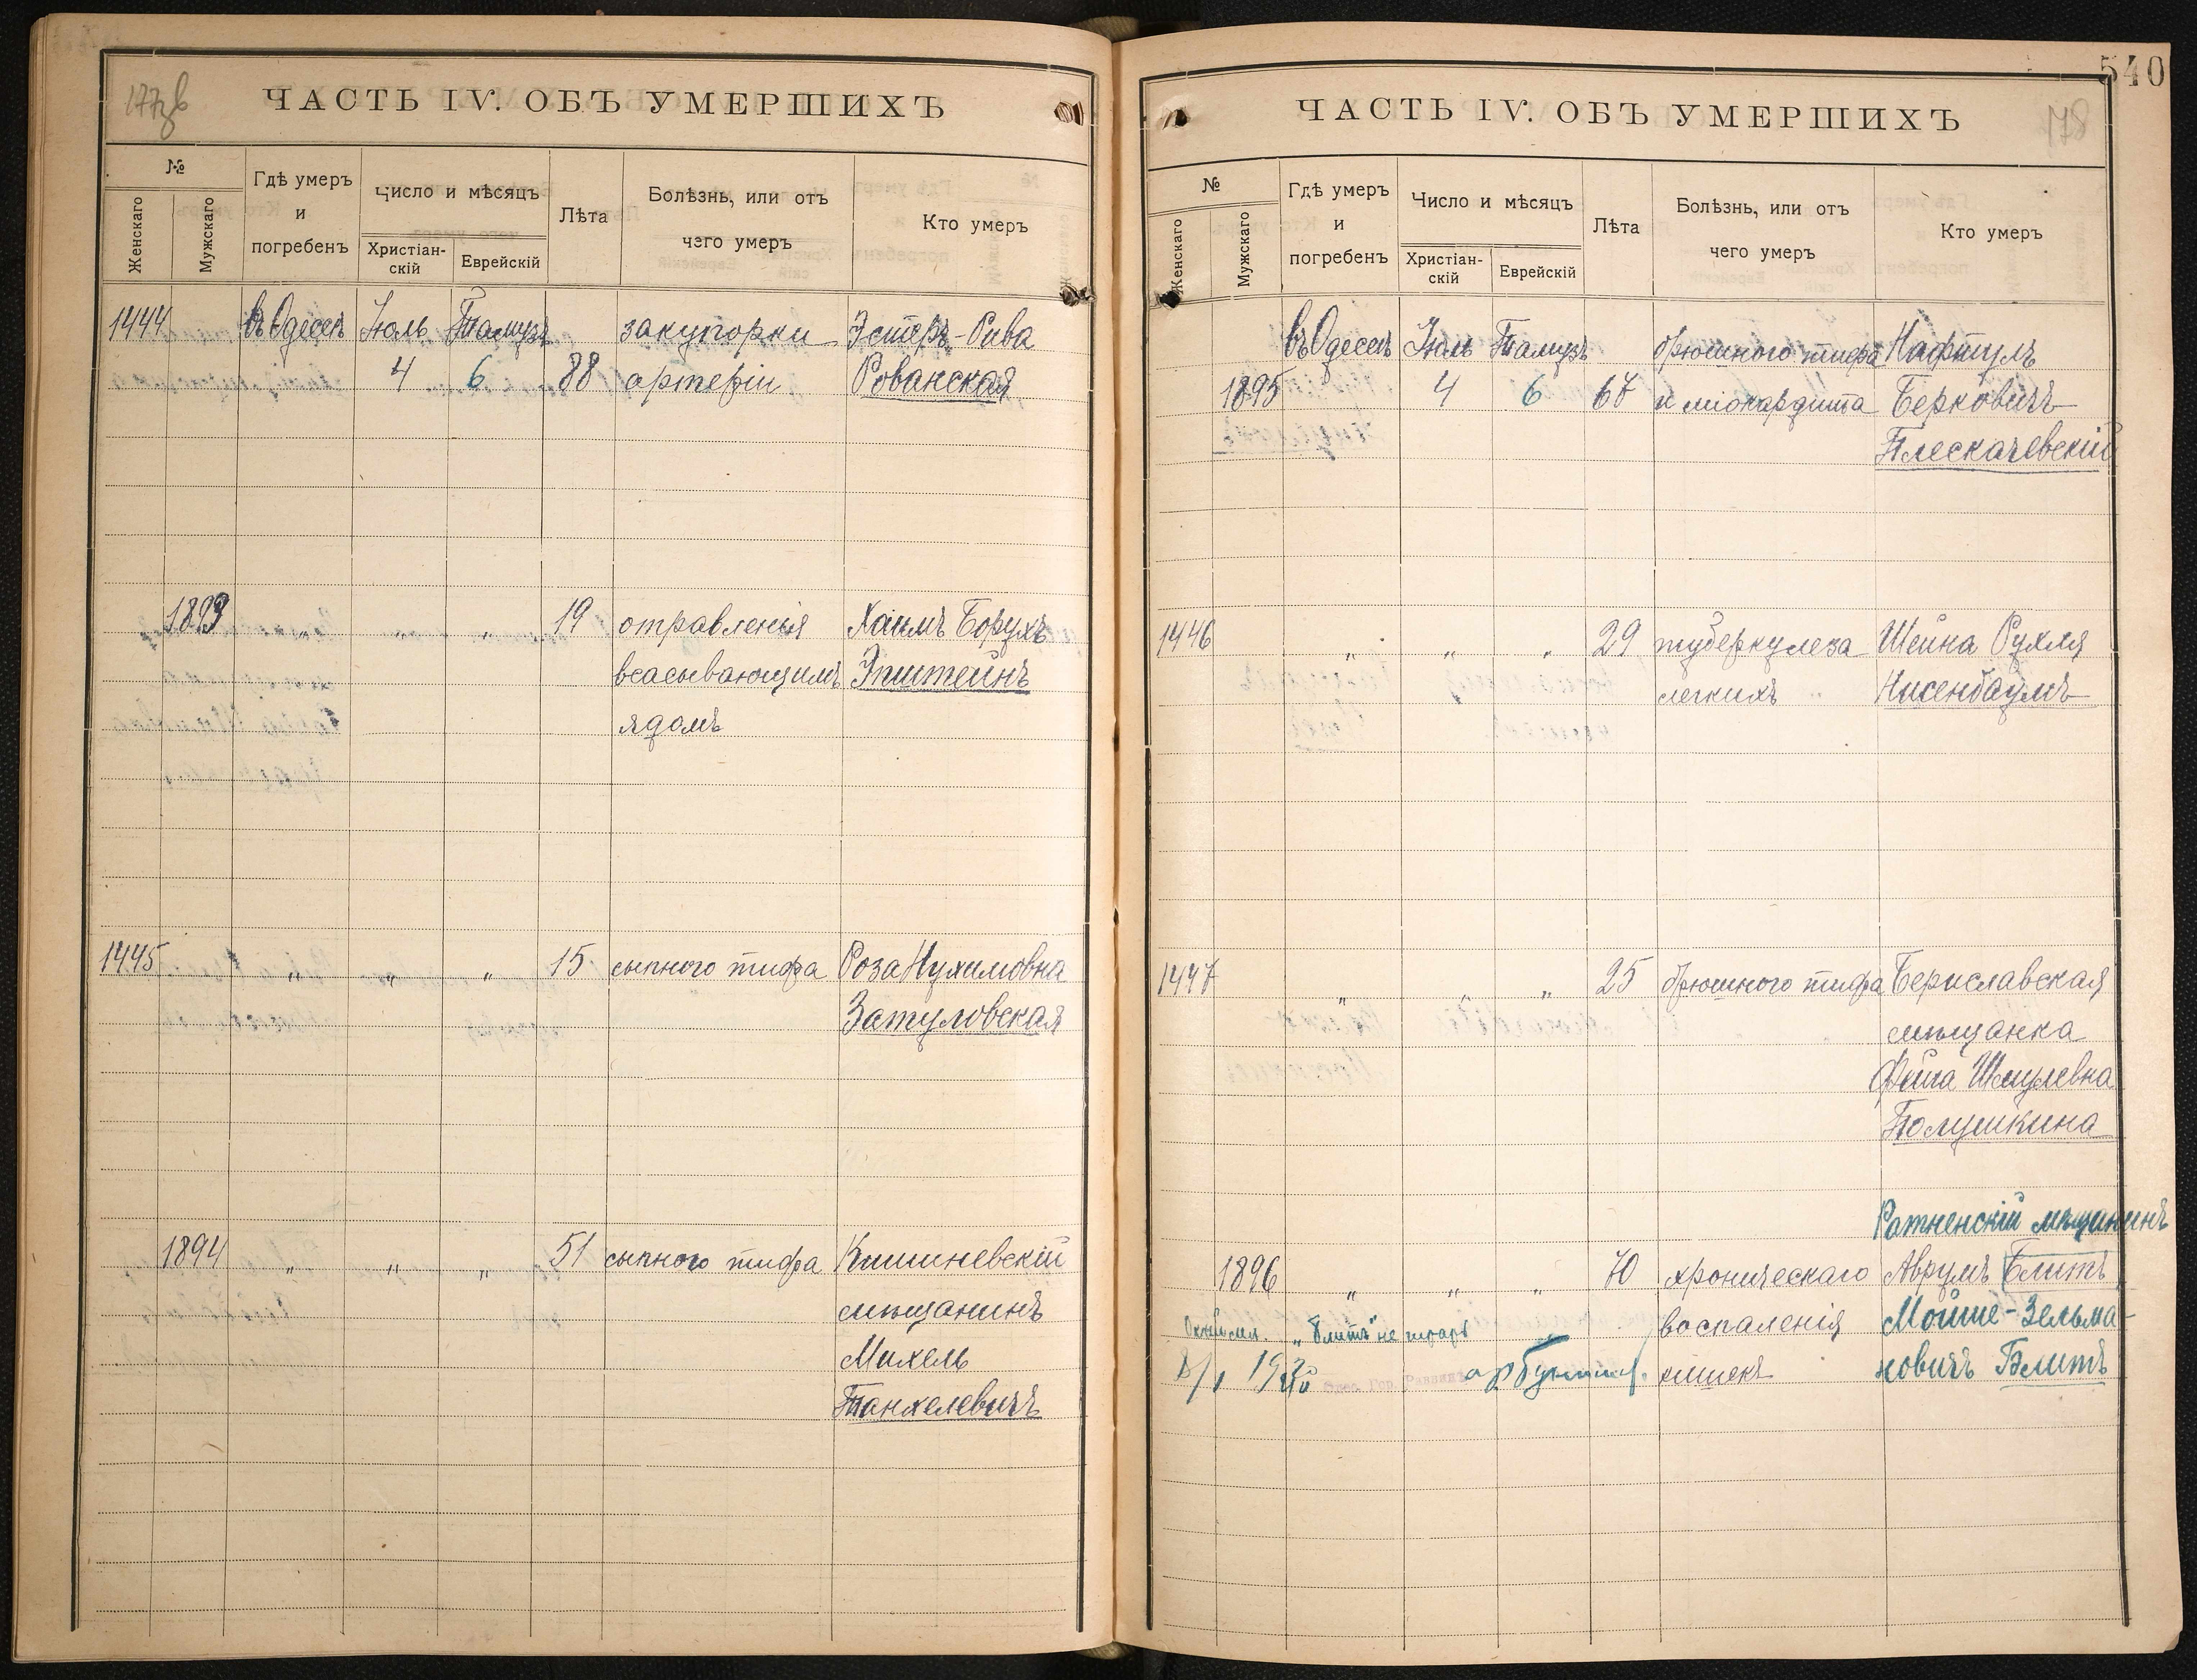 177об
ЧАСТЬ IV. ОБЪ УМЕРШИХЪ
№
Женскаго
Мужскаго
Гдѣ умеръ и погребенъ
Число и мѣсяцъ
Христіан-скій
Еврейскій
Лѣта
Болѣзнь, или отъ чего умеръ
Кто умеръ
1444 въ Одессѣ Іюль Тамузъ закупорки Эстеръ-Рива
4 6 88 артеріи Рованская
1893 " " " 19 отравленія Хаимъ Борухъ
всасывающимъ Эпштейнъ
ядомъ
1445 " " " 15 сыпного тифа Роза Нухимовна
Затуловская
1894 " " " 51 сыпного тифа Кишиневскій
мѣщанинъ
Михель
Танхелевичъ
540
178
ЧАСТЬ IV. ОБЪ УМЕРШИХЪ
№
Женскаго
Мужскаго
Гдѣ умеръ и погребенъ
Число и мѣсяцъ
Христіан-скій
Еврейскій
Лѣта
Болѣзнь, или отъ чего умеръ
Кто умеръ
въ Одессѣ Іюль Тамузъ брюшного тифа Нафтулъ
1895 4 6 67 и міокардита Берковичъ
Плескачевскій
1446 " " " 29 туберкулеза Шейна Рухля
легкихъ Нисенбаумъ
1447 " " " 25 брюшного тифа Бериславская
мѣщанка
Фейга Шмулевна
Полушкина
Ратненскій мѣщанинъ
1896 " " " 70 хроническаго Аврумъ Блитъ
"Блитъ" не читать воспаленія Мойше-Зельма-
8/I 1920 кишекъ новичъ Блитъ